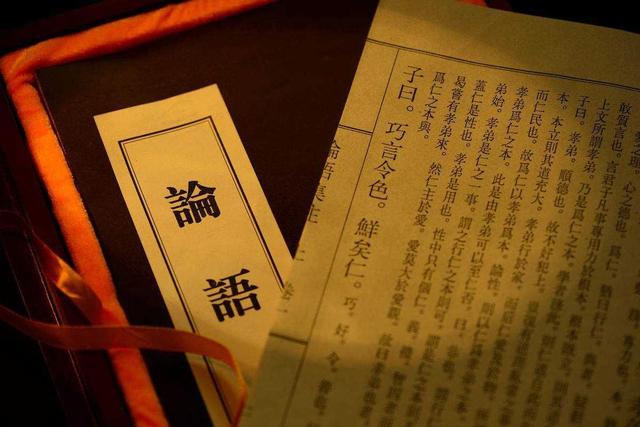 心之德也。爲仁。猶曰行仁。
敢質言也。言君子凡事專用力於根本。根本既立
上文所謂孝弟。乃是爲仁之本。學者務此。則仁道自此而
子曰。孝弟。順德也。故不好犯上。豈復有逆理亂常
本。本立則其道充大。孝弟行於家。而後仁愛及於物。
而仁民也。故爲仁以孝弟爲本。論性。則以仁爲孝弟之本。
孝弟爲仁之本。此是由孝弟可以至仁否。曰。非也。
弟始。孝弟是仁之一事。謂之行仁之本則可。謂是仁之本則
蓋仁是性也。孝弟是用也。性中只有箇仁。義。禮。智四者而
曷嘗有孝弟來。然仁主於愛。愛莫大於愛親。故曰孝弟也者。
爲仁之本與。
子曰。巧言令色。鮮矣仁。巧。好。令。善也。
論語集注 卷一
論語